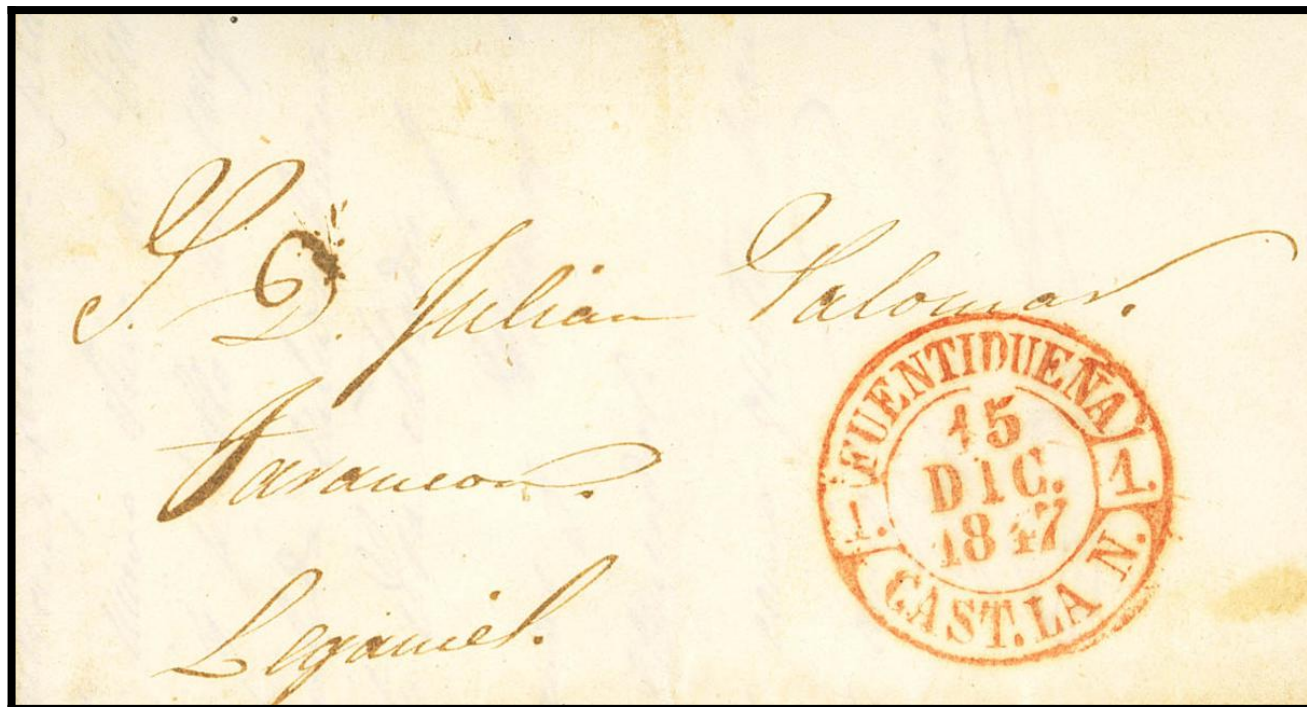 S. D. Julian Palomar.
Tarancon.
Leganiel.
FUENTIDUEÑA
1. 1.
15
DIC.
1847
CAST. LA N.